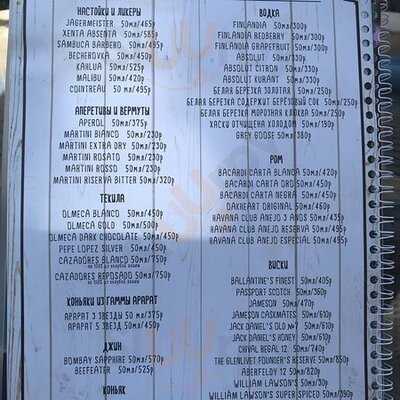 НАСТОЙКИ И ЛИКЕРЫ
JAGERMEISTER 50МЛ/465Р
XENTA ABSENTA 50МЛ/585Р
SAMBUCA BARBERO 50МЛ/495Р
BECHEROVKA 50МЛ/450Р
KAHLUA 50МЛ/525Р
MALIBU 50МЛ/420Р
COINTREAU 50 МЛ/495Р
АПЕРЕТИВЫ И ВЕРМУТЫ
APEROL 50МЛ/375Р
MARTINI BIANCO 50МЛ/230Р
MARTINI EXTRA DRY 50МЛ/230Р
MARTINI ROSATO 50МЛ/230Р
MARTINI ROSSO 50МЛ/230Р
MARTINI RISERVA BITTER 50МЛ/320Р
ТЕКИЛА
OLMECA BLANCO 50МЛ/450Р
OLMECA GOLD 50МЛ/500Р
OLMECA DARK CHOCOLATE 50МЛ/450Р
PEPE LOPEZ SILVER 50МЛ/450Р
CAZADORES BLANCO 50МЛ/750Р
CAZADORES REPOSADO 50МЛ/750Р
КОНЬЯКИ ИЗ ГАММЫ АРАРАТ
АРАРАТ 3 ЗВЕЗДЫ 50 МЛ/375Р
АРАРАТ 5 ЗВЕЗД 50МЛ/450Р
ДЖИН
BOMBAY SAPPHIRE 50МЛ/570Р
BEEFEATER 50МЛ/525Р
КОНЬЯК
ВОДКА
FINLANDIA 50МЛ/300Р
FINLANDIA REDBERRY 50МЛ/300Р
FINLANDIA GRAPEFRUIT 50МЛ/300Р
ABSOLUT 50МЛ/330Р
ABSOLUT CITRON 50МЛ/330Р
ABSOLUT KURANT 50МЛ/330Р
БЕЛАЯ БЕРЕЗКА ЗОЛОТАЯ 50МЛ/250Р
БЕЛАЯ БЕРЕЗКА СОДЕРЖИТ БЕРЁЗОВЫЙ СОК 50МЛ/250Р
БЕЛАЯ БЕРЕЗКА МОРОЗНАЯ КЛЮКВА 50МЛ/250Р
ХАСКИ ОТЧИЩЕНА ХОЛОДОМ 50МЛ/190Р
GREY GOOSE 50МЛ/380Р
РОМ
BACARDI CARTA BLANCA 50МЛ/420Р
BACARDI CARTA ORO 50МЛ/450Р
BACARDI CARTA NEGRA 50МЛ/450Р
OAKHEART ORIGINAL 50МЛ/460Р
HAVANA CLUB ANEJO 3 ANOS 50МЛ/435Р
HAVANA CLUB ANEJO RESERVA 50МЛ/495Р
HAVANA CLUB ANEJO ESPECIAL 50МЛ/495Р
ВИСКИ
BALLANTINE'S FINEST 50МЛ/405Р
PASSPORT SCOTCH 50МЛ/360Р
JAMESON 50МЛ/470Р
JAMESON CASKMATES 50МЛ/610Р
JACK DANIEL'S OLD №7 50МЛ/610Р
JACK DANIEL'S HONEY 50МЛ/610Р
CHIVAL REGAL 12 50МЛ/740Р
THE GLENLIVET FOUNDER'S RESERVE 50МЛ/850Р
ABERFELDY 12 50МЛ/820Р
WILLIAM LAWSON'S 50МЛ/30Р
WILLIAM LAWSON'S SUPER SPICED 50МЛ/390Р